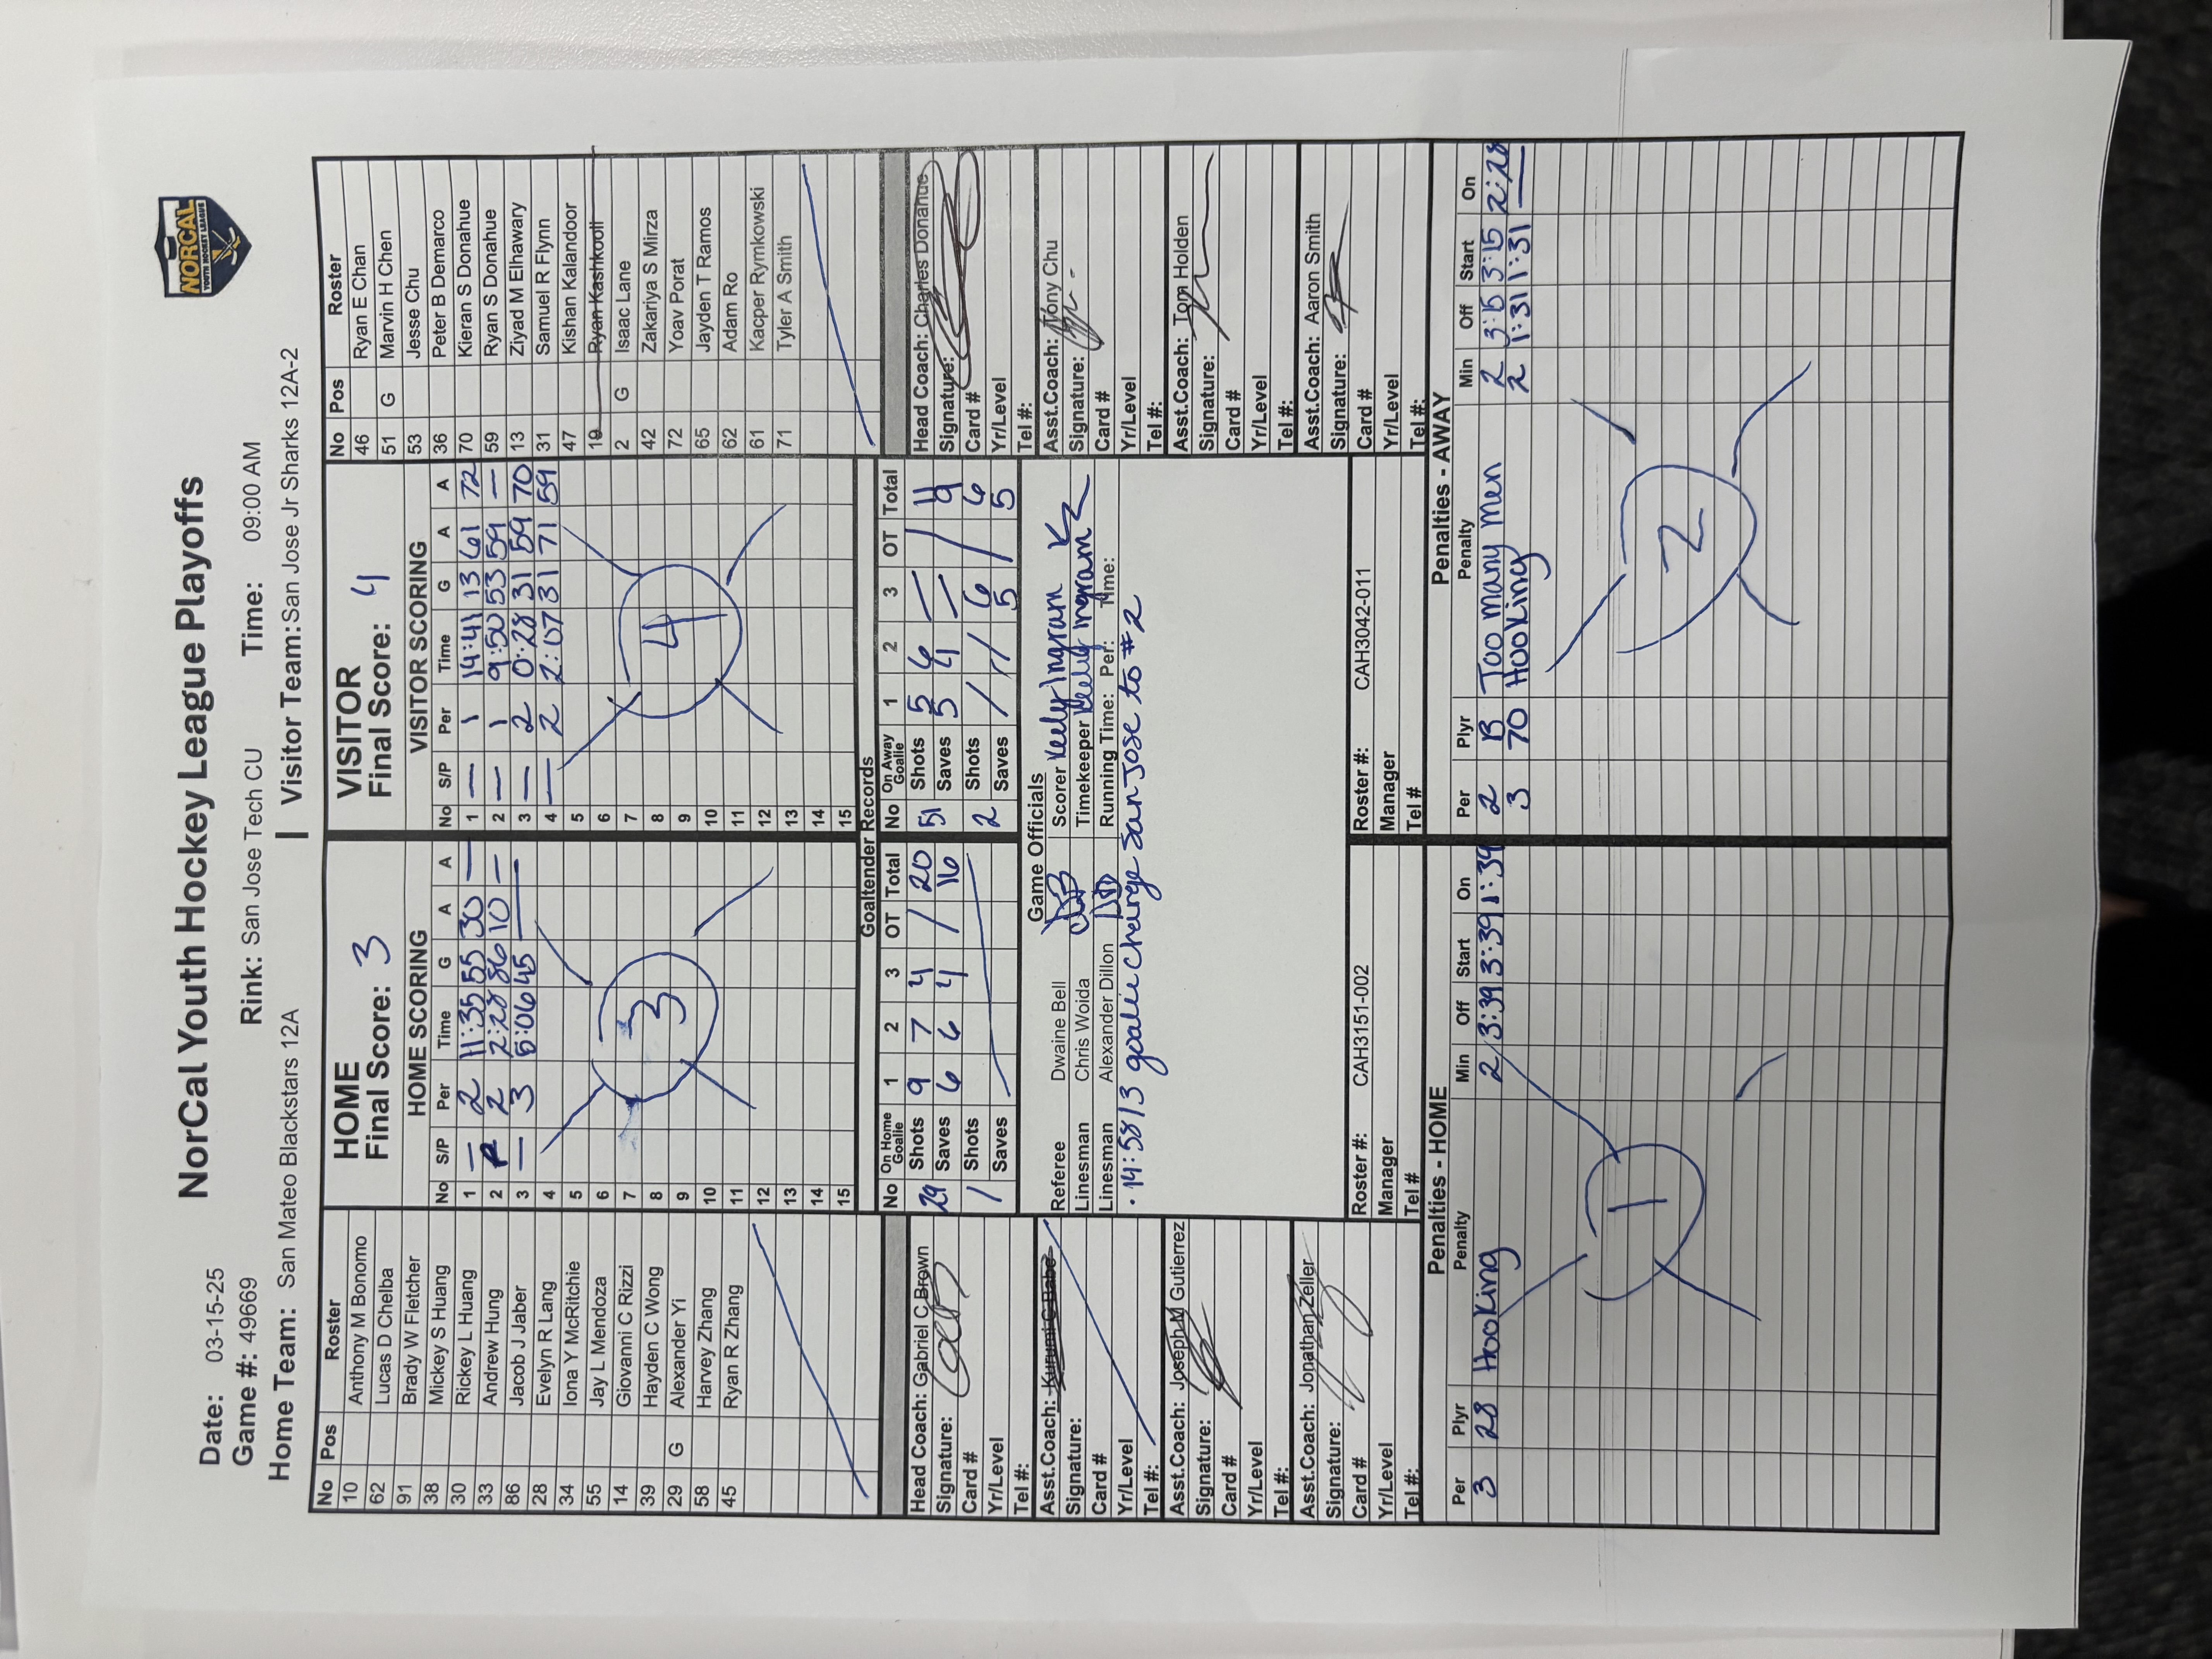 NorCal Youth Hockey League Playoffs
NORCAL
YOUTH HOCKEY LEAGUE
Date: 03-15-25
Game #: 49669
Rink: San Jose Tech CU Time: 09:00 AM
Home Team: San Mateo Blackstars 12A | Visitor Team: San Jose Jr Sharks 12A-2
No Pos Roster
10 Anthony M Bonomo
62 Lucas D Chelba
91 Brady W Fletcher
38 Mickey S Huang
30 Rickey L Huang
33 Andrew Hung
86 Jacob J Jaber
28 Evelyn R Lang
34 Iona Y McRitchie
55 Jay L Mendoza
14 Giovanni C Rizzi
39 Hayden C Wong
29 G Alexander Yi
58 Harvey Zhang
45 Ryan R Zhang
HOME
Final Score: 3
HOME SCORING
No S/P Per Time G A A
1 — 2 11:35 55 30 —
2 P 2 2:28 86 10 —
3 — 3 5:06 45 —
4
5
6
7
8
9
10
11
12
13
14
15
3
VISITOR
Final Score: 4
VISITOR SCORING
No S/P Per Time G A A
1 — 1 14:41 13 61 72
2 — 1 9:50 53 59 —
3 — 2 0:28 31 59 70
4 — 2 2:07 31 71 59
5
6
7
8
9
10
11
12
13
14
15
4
No Pos Roster
46 Ryan E Chan
51 G Marvin H Chen
53 Jesse Chu
36 Peter B Demarco
70 Kieran S Donahue
59 Ryan S Donahue
13 Ziyad M Elhawary
31 Samuel R Flynn
47 Kishan Kalandoor
19 Ryan Kashkooli
2 G Isaac Lane
42 Zakariya S Mirza
72 Yoav Porat
65 Jayden T Ramos
62 Adam Ro
61 Kacper Rymkowski
71 Tyler A Smith
Goaltender Records
No On Home Goalie 1 2 3 OT Total
29 Shots 9 7 4 / 20
Saves 6 6 4 / 16
/ Shots
Saves
No On Away Goalie 1 2 3 OT Total
51 Shots 5 6 / / 11
Saves 5 4 / / 9
2 Shots / / 6 / 6
Saves / / 5 / 5
Head Coach: Gabriel C Brown
Signature:
Card #
Yr/Level
Tel #:
Asst.Coach: Kurumi C Babe
Signature:
Card #
Yr/Level
Tel #:
Asst.Coach: Joseph M Gutierrez
Signature:
Card #
Yr/Level
Tel #:
Asst.Coach: Jonathan Zeller
Signature:
Card #
Yr/Level
Tel #:
Game Officials
Referee Dwaine Bell
Linesman Chris Woida
Linesman Alexander Dillon
Scorer Keely Ingram
Timekeeper Keely Ingram
Running Time: Per: Time:
· 14:58/3 goalie change San Jose to #2
Roster #: CAH3151-002
Manager
Tel #
Roster #: CAH3042-011
Manager
Tel #
Head Coach: Charles Donahue
Signature:
Card #
Yr/Level
Tel #:
Asst.Coach: Tony Chu
Signature:
Card #
Yr/Level
Tel #:
Asst.Coach: Tom Holden
Signature:
Card #
Yr/Level
Tel #:
Asst.Coach: Aaron Smith
Signature:
Card #
Yr/Level
Tel #:
Penalties - HOME
Per Plyr Penalty Min Off Start On
3 28 Hooking 2 3:39 3:39 1:34
1
Penalties - AWAY
Per Plyr Penalty Min Off Start On
2 B Too many men 2 3:15 3:15 2:28
3 70 Hooking 2 1:31 1:31 —
2